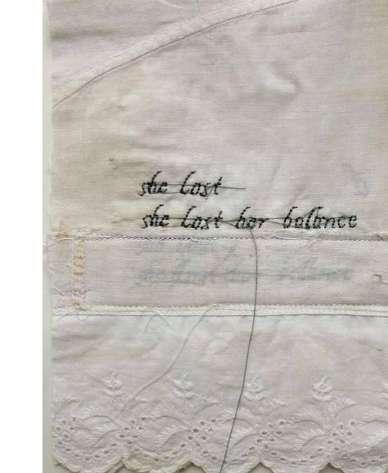 she lost
she lost her balance